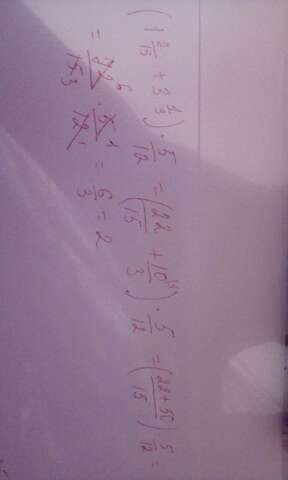 (1 7/15 + 3 1/3) · 5/12 = (22/15 + 10/3 \5) · 5/12 = ((22+50)/15) 5/12 =
= 72 6/15 3 · 5 1/12 1 = 6/3 = 2